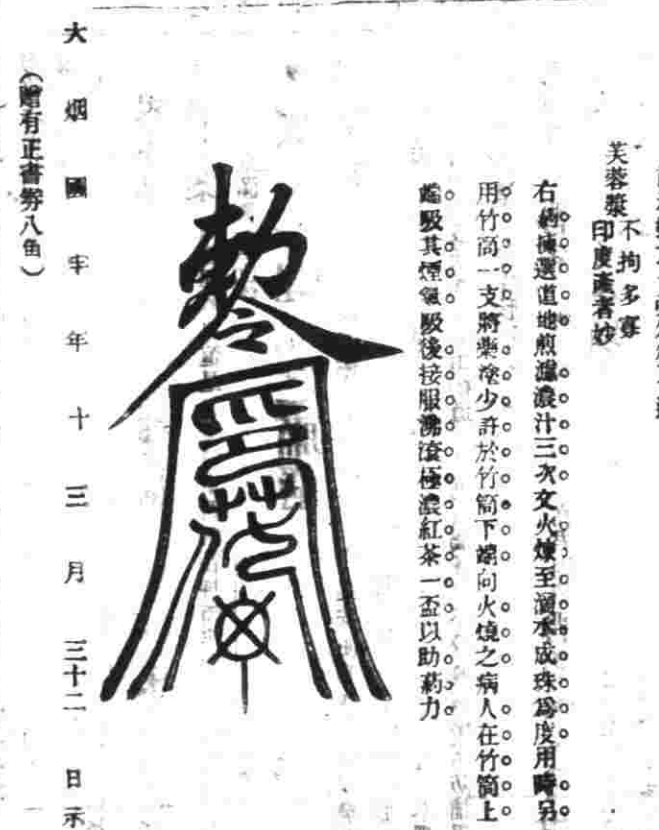 芙蓉漿 不拘多寡
印度產者妙
右揀選道地煎濾濃汁三次文火煉至滴水成珠爲度用時另
用竹筒一支將藥塗少許於竹筒下端向火燒之病人在竹筒上
端吸其煙氣吸後接服沸滾極濃紅茶一盃以助葯力
勅令
大烟國年十三月三十二日示
（贈有正書券八角）